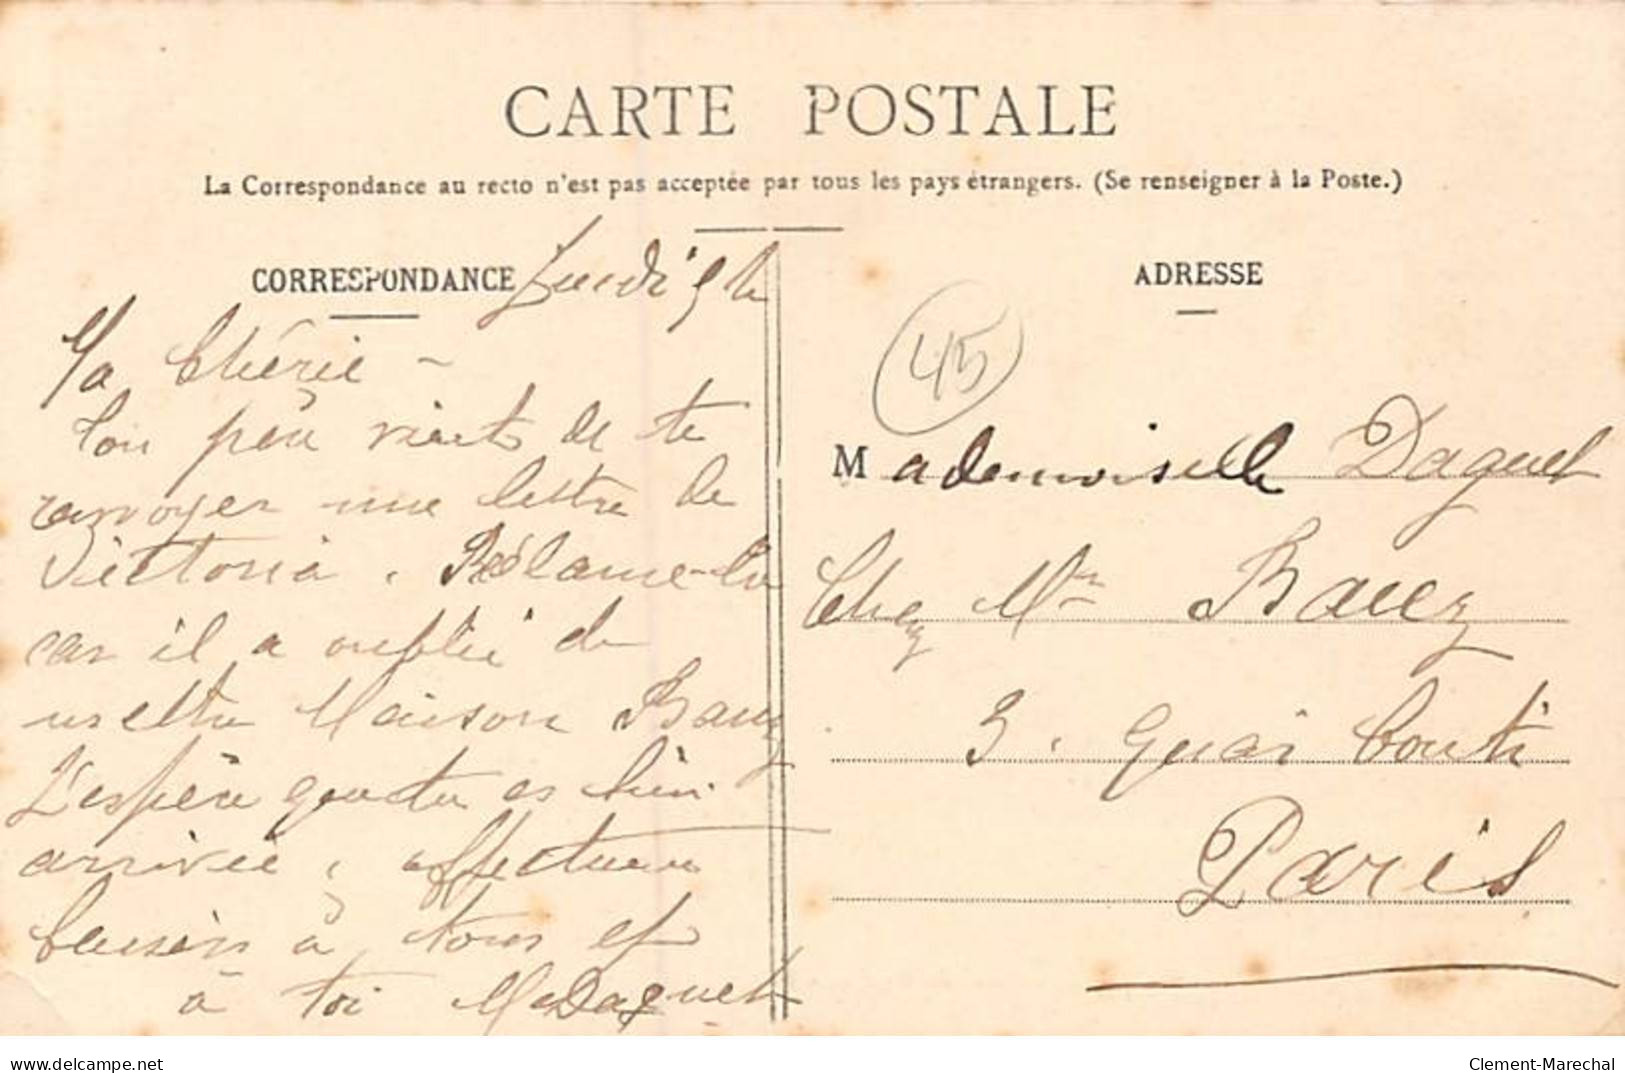 CARTE POSTALE
La Correspondance au recto n'est pas acceptée par tous les pays étrangers. (Se renseigner à la Poste.)
CORRESPONDANCE
Lundi 5 h
Ma Chérie -
Ton père vient de te
renvoyer une lettre de
Victoria. Réclame-la
car il a oublié de
mettre Maison Bauez
J'espère que tu es bien
arrivée, affectueux
baisers à tous et
à toi M Daguet
ADRESSE
45
Mademoiselle Daguet
Chez Mr Bauez
3, Quai Conti
Paris
delcampe.net
Clement-Marechal